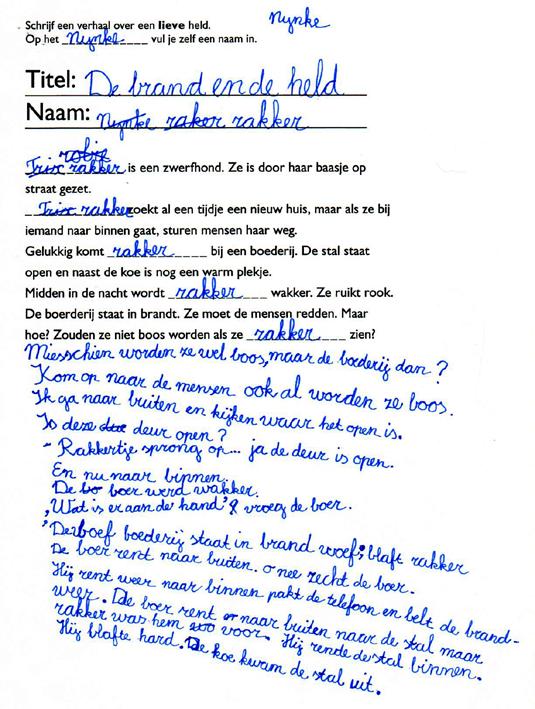 Schrijf een verhaal over een lieve held. Nynke
Op het Nynke vul je zelf een naam in.
Titel: De brand en de held
Naam: Nynke raker rakker
robije
Trix rakker is een zwerfhond. Ze is door haar baasje op
straat gezet.
Trix rakker zoekt al een tijdje een nieuw huis, maar als ze bij
iemand naar binnen gaat, sturen mensen haar weg.
Gelukkig komt rakker bij een boederij. De stal staat
open en naast de koe is nog een warm plekje.
Midden in de nacht wordt rakker wakker. Ze ruikt rook.
De boerderij staat in brandt. Ze moet de mensen redden. Maar
hoe? Zouden ze niet boos worden als ze rakker zien?
Miesschien worden ze wel boos, maar de boederij dan?
Kom op naar de mensen ook al worden ze boos.
Ik ga naar bruiten en kijken waar het open is.
Is deze deur open?
- Rakkertje sprong op... ja de deur is open.
En nu naar binnen.
De bo boer werd wakker.
,Wat is er aan de hand'? vroeg de boer.
'De boef boederij staat in brand woef; blaft rakker
De boer rent naar buiten. o nee zecht de boer.
Hij rent weer naar binnen pakt de telefoon en belt de brand-
weer. De boer rent naar buiten naar de stal maar
rakker was hem voor. Hij rende de stal binnen.
Hij blafte hard. De koe kwam de stal uit.